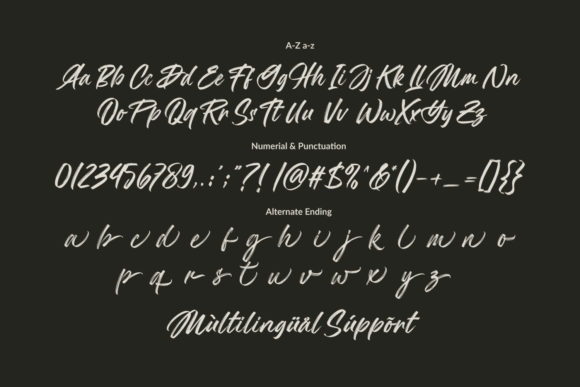 A-Z a-z
Aa Bb Cc Dd Ee Ff Gg Hh Ii Jj Kk Ll Mm Nn
Oo Pp Qq Rr Ss Tt Uu Vv WwXxYy Zz
Numerial & Punctuation
0123456789,.:';"?!/@#$%^&*()-+_=[]{}
Alternate Ending
a b c d e f g h i j k l m n o
p q r s t u v w x y z
Mùltilingüål Súppõrt